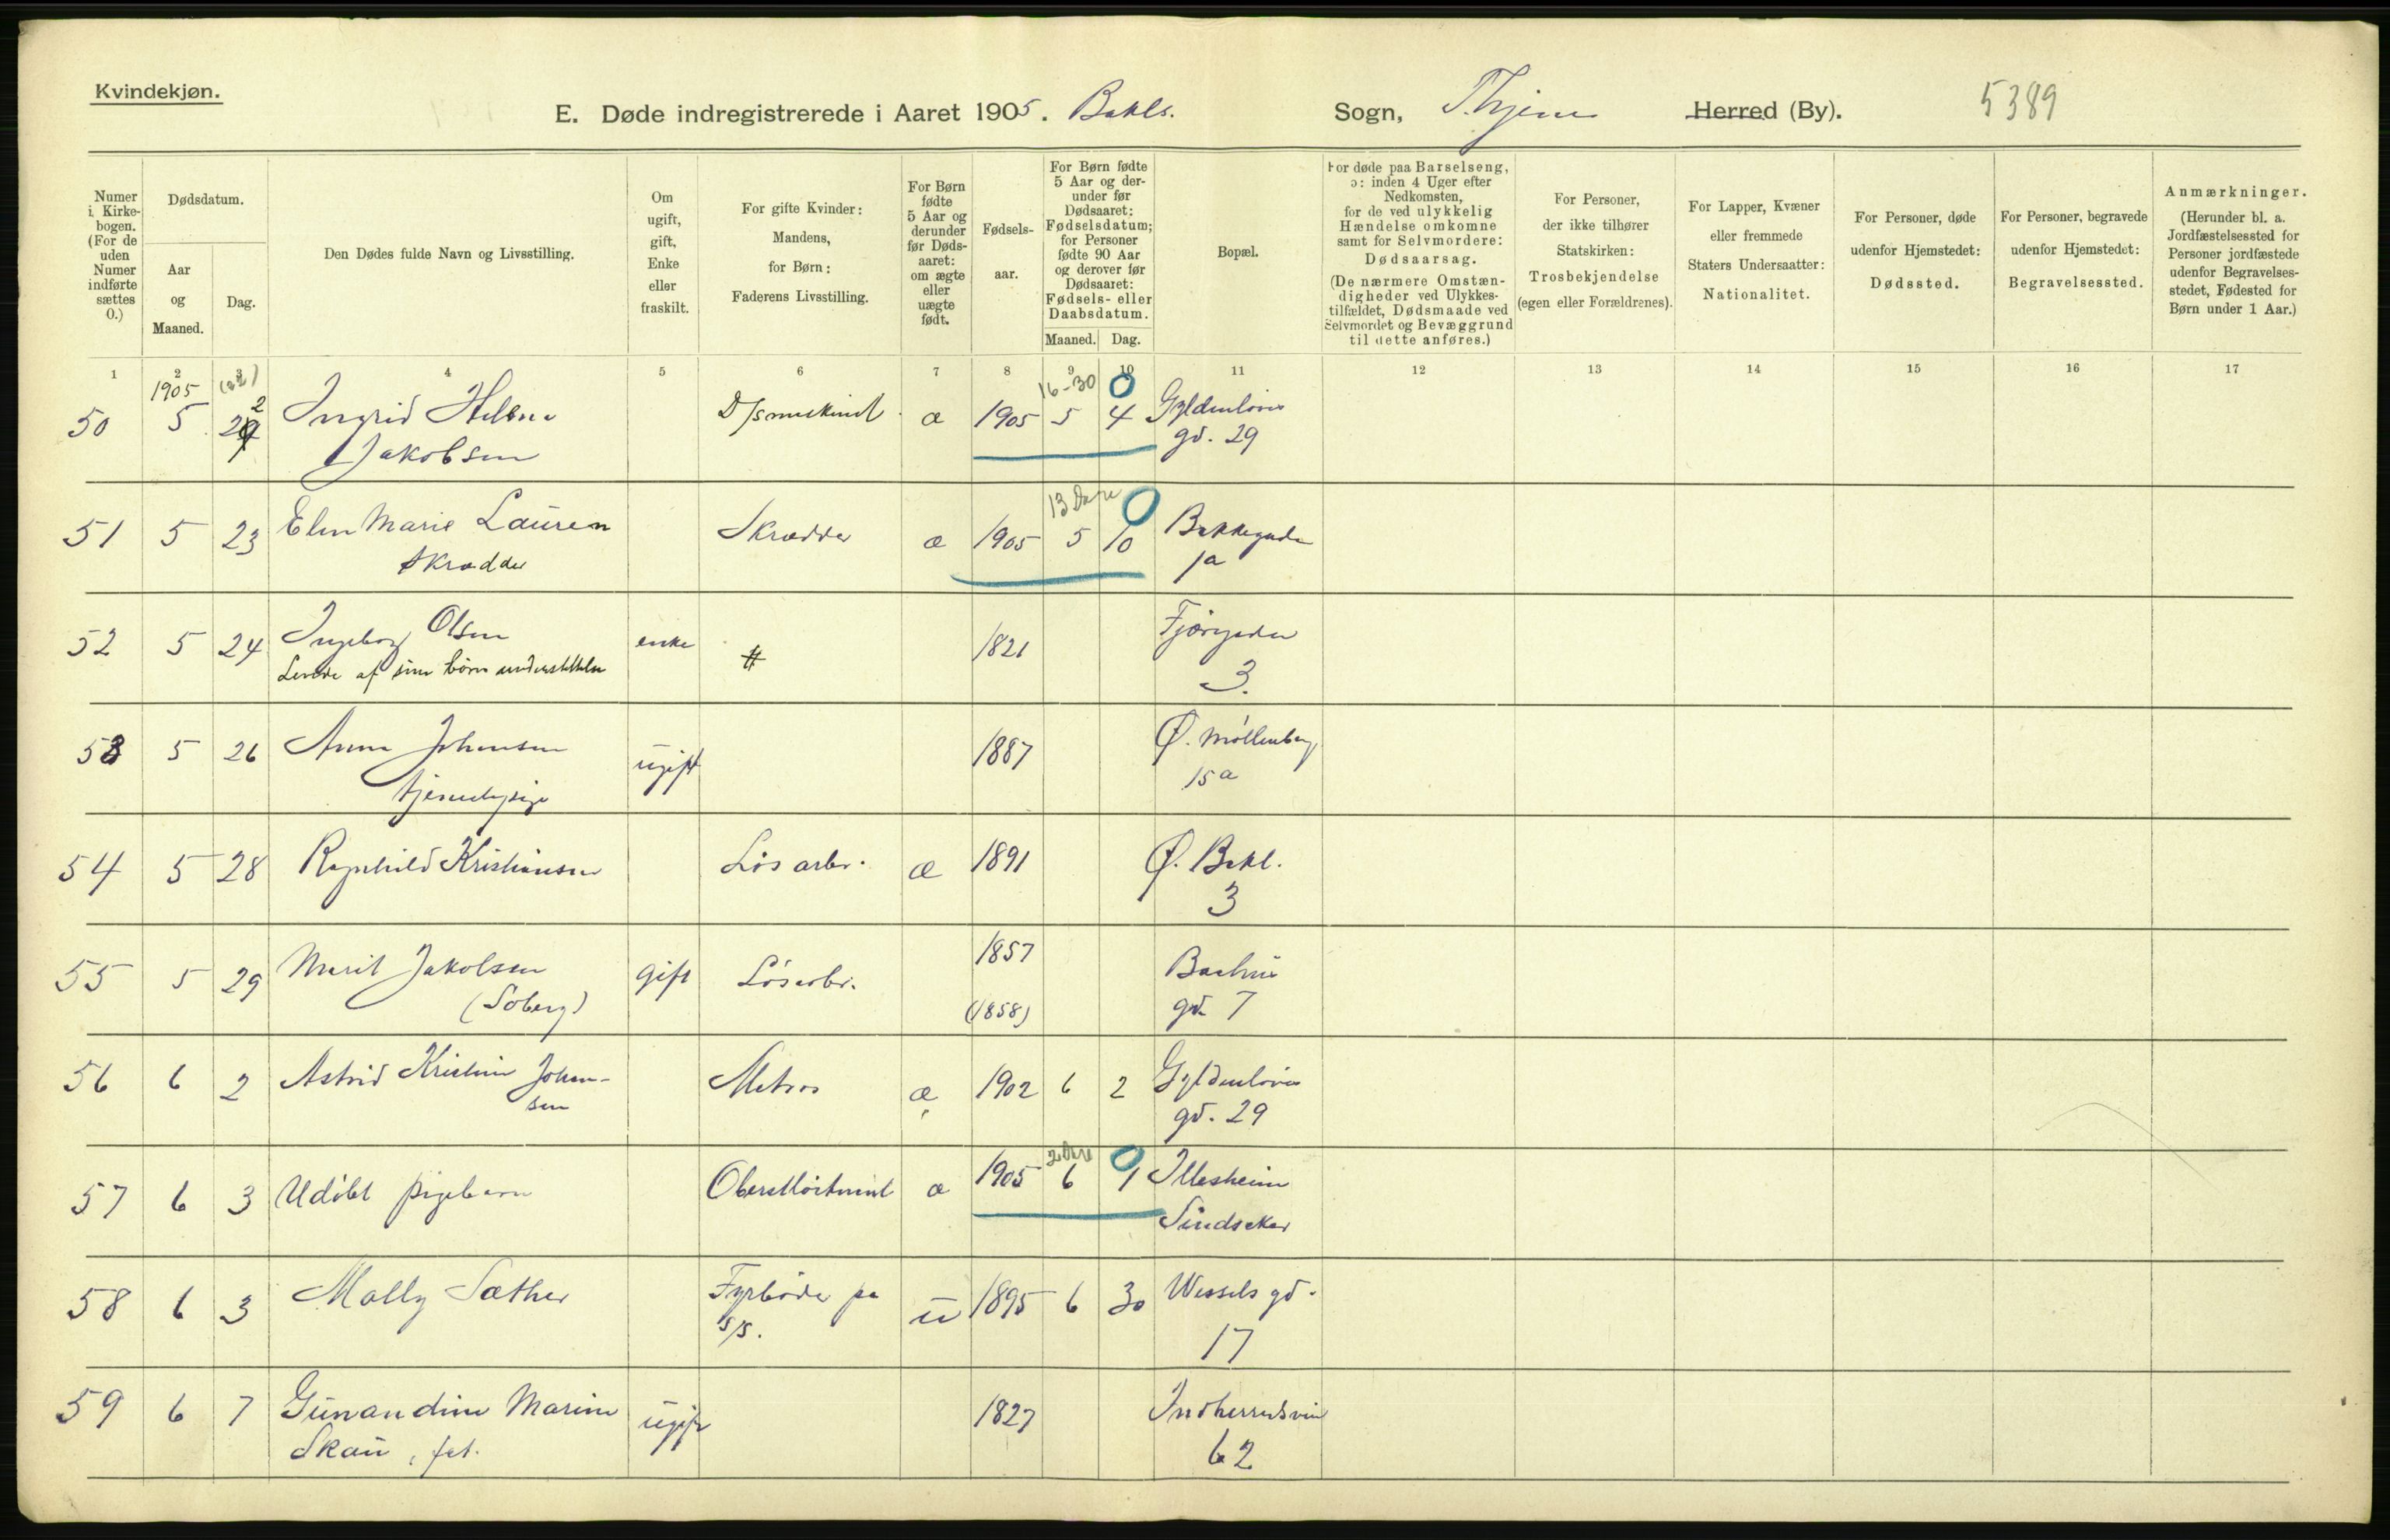 Kvindekjøn.
E. Døde indregistrerede i Aaret 1905. Bakls. Sogn, Thjem Herred (By). 5389
Numer i Kirkebogen. (For de uden Numer indførte sættes 0.)
Dødsdatum.
Aar og Maaned.
Dag.
Den Dødes fulde Navn og Livsstilling.
Om ugift, gift, Enke eller fraskilt.
For gifte Kvinder: Mandens, for Børn: Faderens Livsstilling.
For Børn fødte 5 Aar og derunder før Dødsaaret: om ægte eller uægte født.
Fødselsaar.
For Børn fødte 5 Aar og derunder før Dødsaaret: Fødselsdatum; for Personer fødte 90 Aar og derover før Dødsaaret: Fødsels- eller Daabsdatum.
Maaned. Dag.
Bopæl.
For døde paa Barselseng, ɔ: inden 4 Uger efter Nedkomsten, for de ved ulykkelig Hændelse omkomne samt for Selvmordere: Dødsaarsag. (De nærmere Omstændigheder ved Ulykkestilfældet, Dødsmaade ved Selvmordet og Bevæggrund til dette anføres.)
For Personer, der ikke tilhører Statskirken: Trosbekjendelse (egen eller Forældrenes).
For Lapper, Kvæner eller fremmede Staters Undersaatter: Nationalitet.
For Personer, døde udenfor Hjemstedet: Dødssted.
For Personer, begravede udenfor Hjemstedet: Begravelsessted.
Anmærkninger. (Herunder bl. a. Jordfæstelsessted for Personer jordfæstede udenfor Begravelsesstedet, Fødested for Børn under 1 Aar.)
1 2 3 4 5 6 7 8 9 10 11 12 13 14 15 16 17
1905 (22) 16-30 0
50 5 22 Ingrid Helene D/smaskinist æ 1905 5 4 Gyldenløves
Jakobsen gd. 29
13 Dage 0
51 5 23 Elen Marie Lauren Skrædder æ 1905 5 10 Bakkegaden
Skrædder 1a
52 5 24 Ingeborg Olsen enke 1821 Fjørgaden
Levede af sine børns understøttelse 3.
53 5 26 Anna Johansen ugift 1887 Ø. Møllenberg
tjenestepige 15a
54 5 28 Ragnhild Kristiansen Løsarbr. æ 1891 Ø. Bakl.
3
55 5 29 Marit Jakobsen gift Løsarbr. 1857
(Soberg) (1858) gd. 7
56 6 2 Astrid Kristine Johan- Matros æ 1902 6 2 Gyldenløves
sen gd. 29
2 Dage 0
57 6 3 Udöbt pigebarn Oberstløitnant æ 1905 6 1
58 6 3 Molly Sæther Fyrbøder på u 1895 6 30 Wessels gd.
s/s. 17
59 6 7 Gunandine Marine ugift 1827 Indherredsvei
Skau, fat. 62